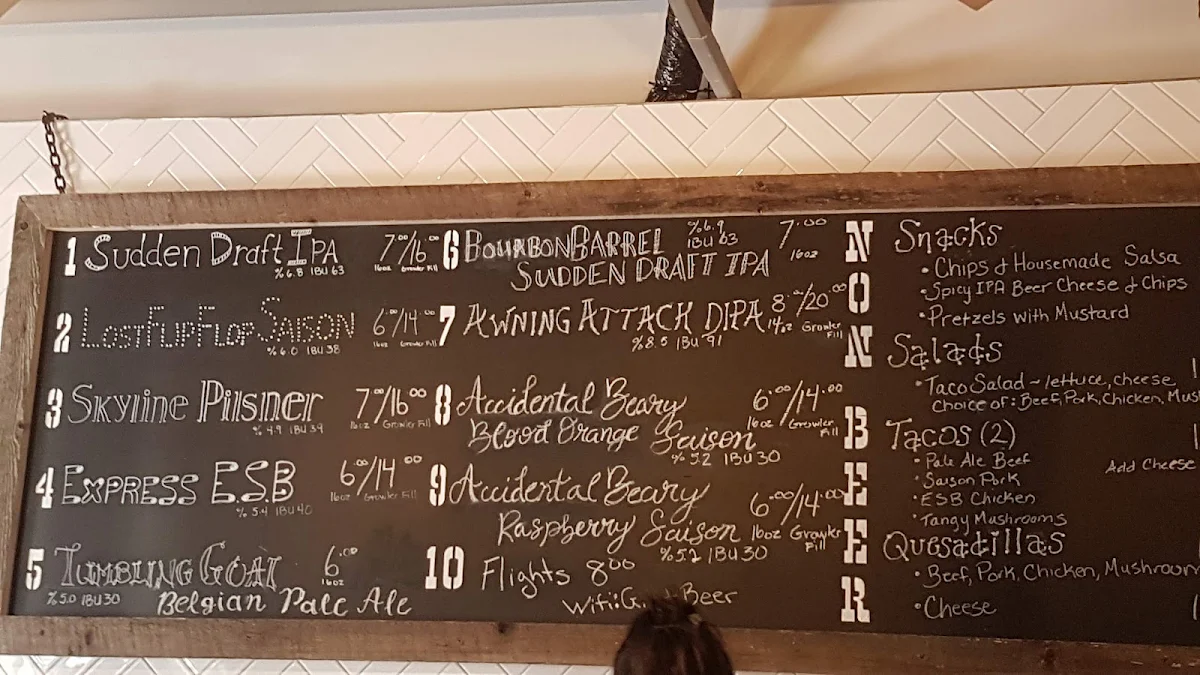 1 Sudden Draft IPA 7.00/16.00
16oz Growler Fill
%6.8 IBU 63
2 Lost Flip Flop Saison 6.00/14.00
16oz Growler Fill
%6.0 IBU 38
3 Skyline Pilsner 7.00/16.00
16oz Growler Fill
%4.9 IBU 39
4 Express E.S.B 6.00/14.00
16oz Growler Fill
%5.4 IBU 40
5 Tumbling Goat 6.00
16oz
%5.0 IBU 30 Belgian Pale Ale
6 Bourbon Barrel %6.9 IBU 63 7.00
16oz
Sudden Draft IPA
7 Awning Attack DIPA 8.00/20.00
14oz Growler Fill
%8.5 IBU 91
8 Accidental Beary 6.00/14.00
Blood Orange Saison 16oz Growler Fill
%5.2 IBU 30
9 Accidental Beary 6.00/14.00
Raspberry Saison 16oz Growler Fill
%5.2 IBU 30
10 Flights 8.00
Wifi: Beer
NON BEER
Snacks
• Chips & Housemade Salsa
• Spicy IPA Beer Cheese & Chips
• Pretzels with Mustard
Salads
• Taco Salad ~ lettuce, cheese
Choice of: Beef, Pork, Chicken, Mus
Tacos (2)
• Pale Ale Beef Add Cheese
• Saison Pork
• ESB Chicken
• Tangy Mushrooms
Quesadillas
• Beef, Pork, Chicken, Mushroom
• Cheese